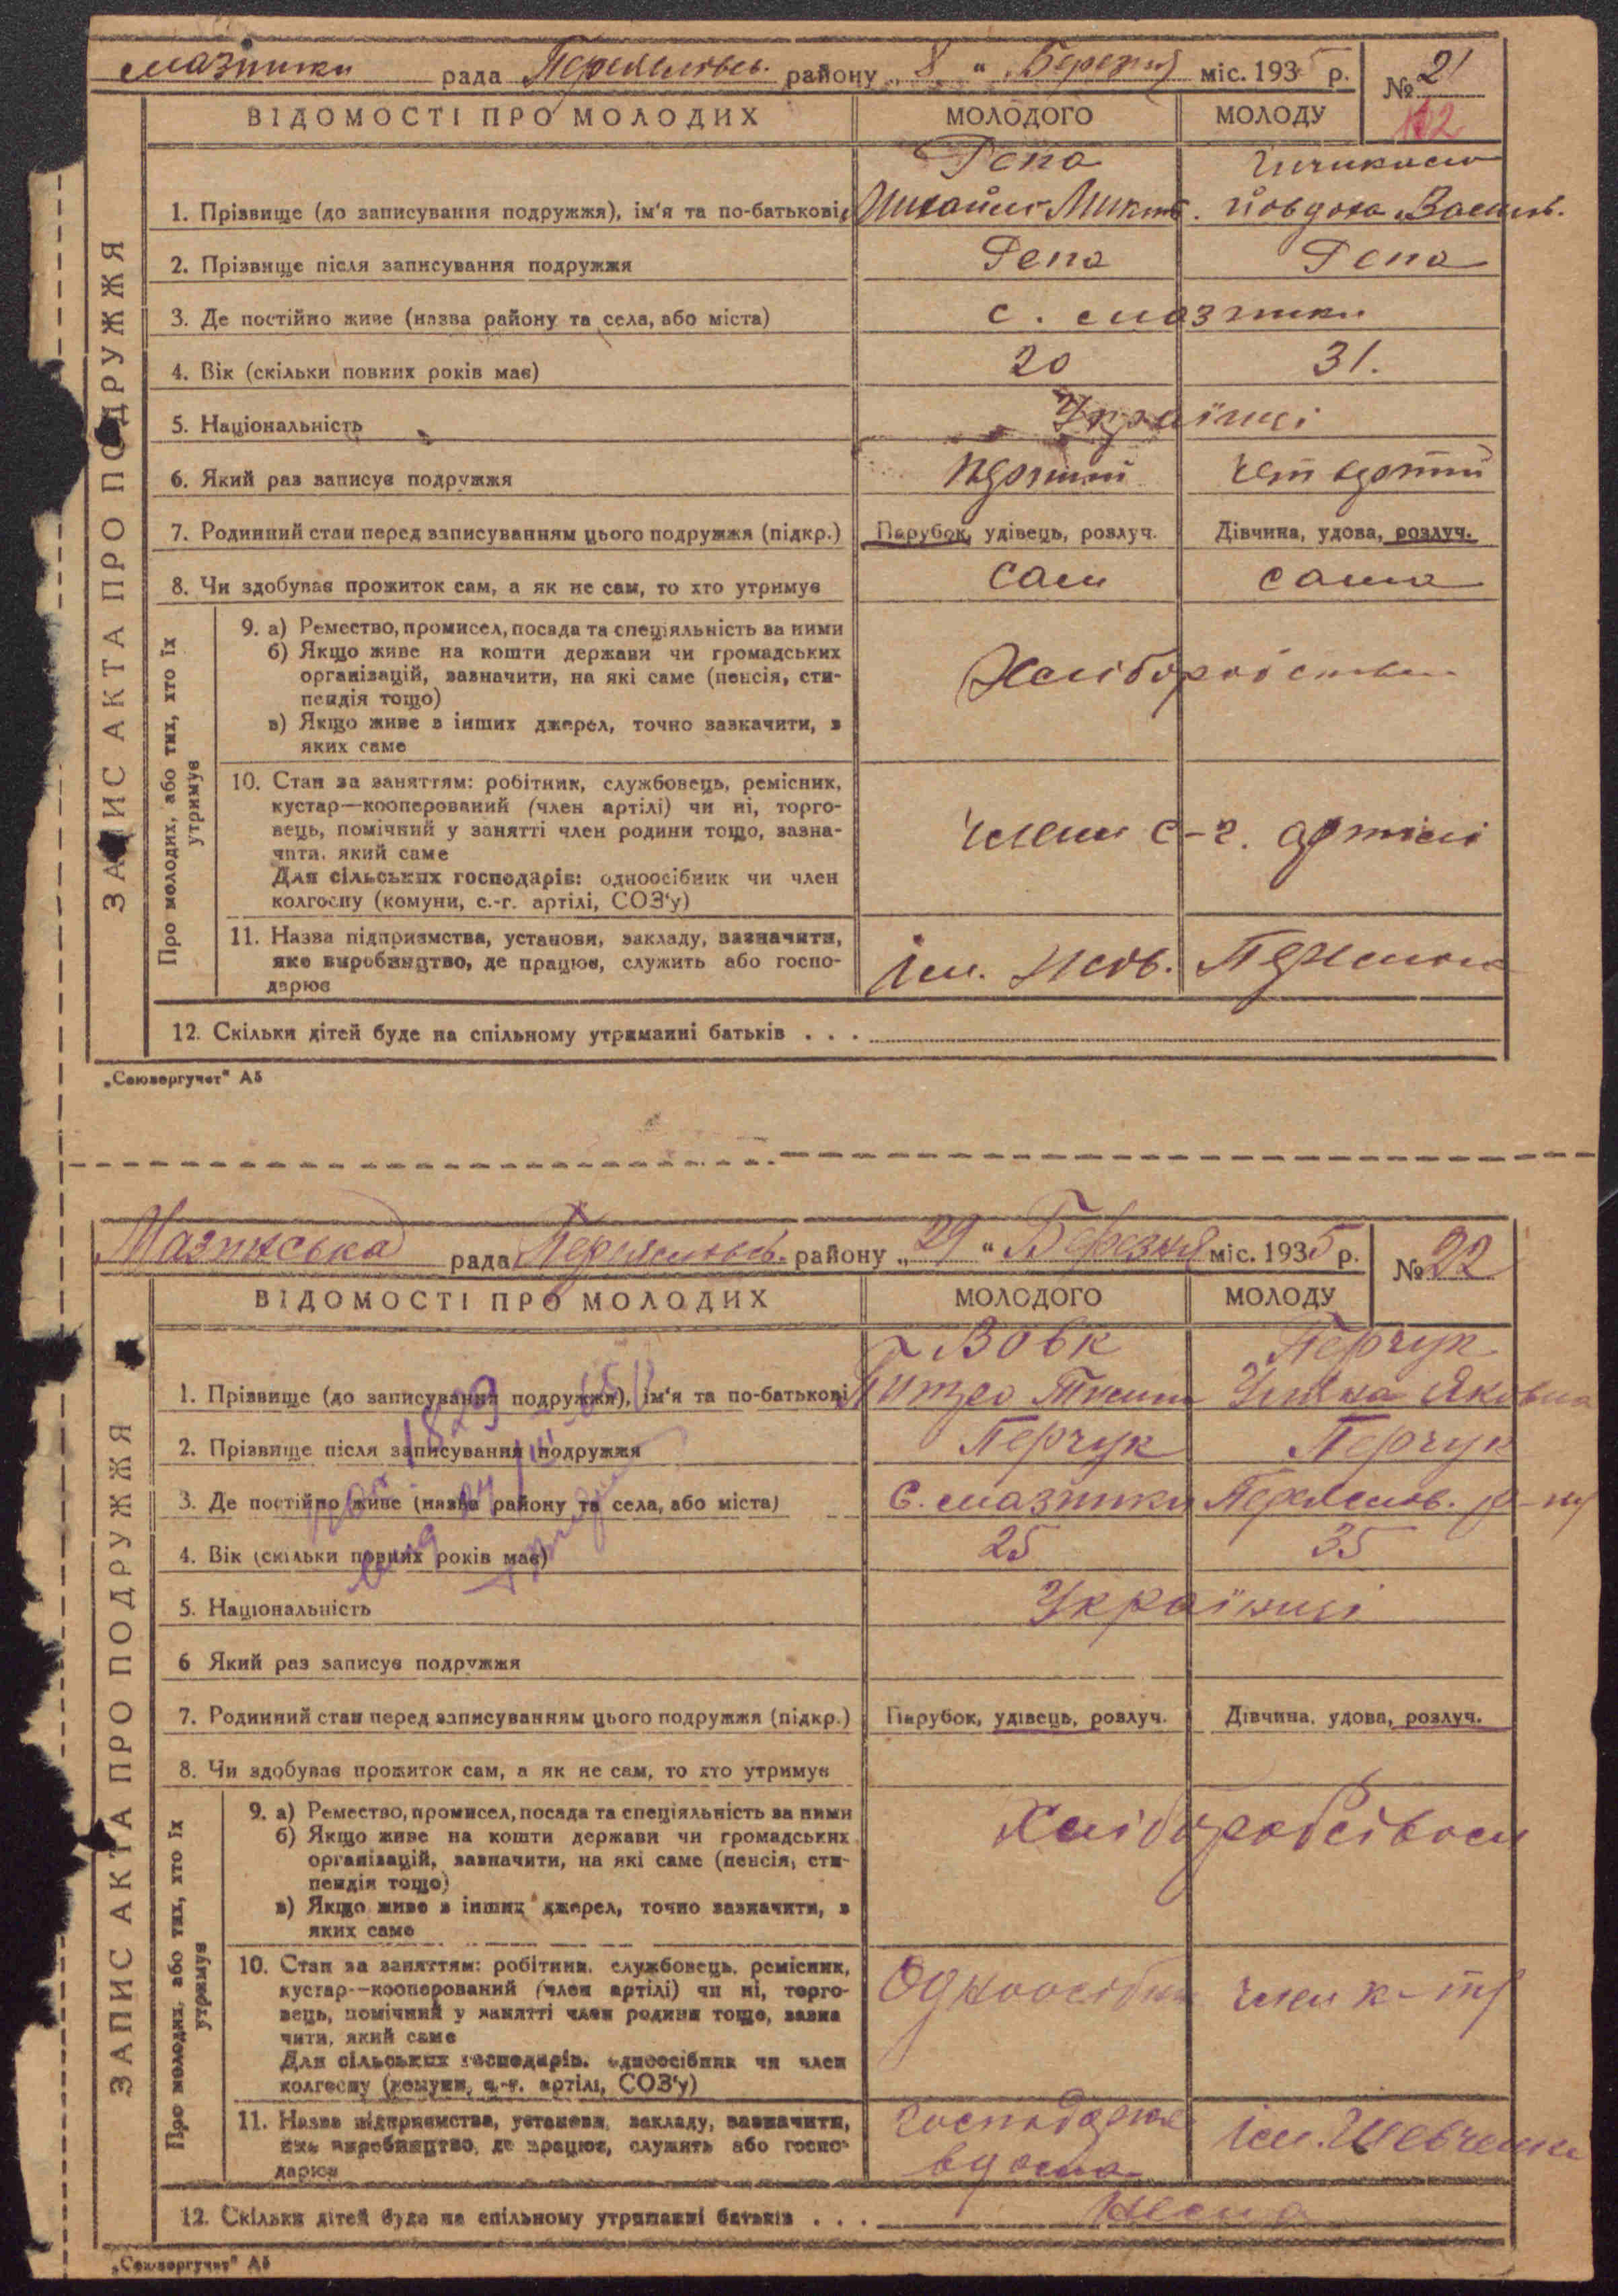 мазники рада Переяславсь. району „8“ Березня міс. 1935 р. № 21
112
ВІДОМОСТІ ПРО МОЛОДИХ МОЛОДОГО МОЛОДУ
ЗАПИС АКТА ПРО ПОДРУЖЖЯ
Репа
1. Прізвище (до записування подружжя), ім'я та по-батькові Михайло Микит. Йовдоха Василь.
2. Прізвище після записування подружжя Репа Репа
3. Де постійно живе (назва району та села, або міста) с. мазники
4. Вік (скільки повних років має) 20 31.
5. Національність Українці
6. Який раз записує подружжя
7. Родинний стан перед записуванням цього подружжя (підкр.) Парубок, удівець, розлуч. Дівчина, удова, розлуч.
8. Чи здобуває прожиток сам, а як не сам, то хто утримує сам сама
Про молодих, або тих, хто їх утримує
9. а) Ремество, промисел, посада та спеціяльність за ними
б) Якщо живе на кошти держави чи громадських
організацій, зазначити, на які саме (пенсія, сти-
пендія тощо)
в) Якщо живе з інших джерел, точно зазначити, з
яких саме
Хліборобство
10. Стан за заняттям: робітник, службовець, ремісник,
кустар—кооперований (член артілі) чи ні, торго-
вець, помічний у занятті член родини тощо, зазна-
чити, який саме
Для сільських господарів: одноосібник чи член
колгоспу (комуни, с.-г. артілі, СОЗ'у)
члени с-г. артілі
11. Назва підприємства, установи, закладу, зазначити,
яке виробництво, де працює, служить або госпо-
дарює
Ім.
12. Скільки дітей буде на спільному утриманні батьків . . .
„Союзоргучет“ А5
Мазниська рада Переяславсь. району „29“ Березня міс. 1935 р. № 22
ВІДОМОСТІ ПРО МОЛОДИХ МОЛОДОГО МОЛОДУ
ЗАПИС АКТА ПРО ПОДРУЖЖЯ
Вовк Перчук
1. Прізвище (до записування подружжя), ім'я та по-батькові Яковна
2. Прізвище після записування подружжя Перчук Перчук
3. Де постійно живе (назва району та села, або міста) с. мазники Переяслов. р-ну
4. Вік (скільки повних років має) 25 35
5. Національність Українці
6 Який раз записує подружжя
7. Родинний стан перед записуванням цього подружжя (підкр.) Парубок, удівець, розлуч. Дівчина, удова, розлуч.
8. Чи здобуває прожиток сам, а як не сам, то хто утримує
Про молодих, або тих, хто їх утримує
9. а) Ремество, промисел, посада та спеціяльність за ними
б) Якщо живе на кошти держави чи громадських
організацій, зазначити, на які саме (пенсія, сти-
пендія тощо)
в) Якщо живе з інших джерел, точно зазначити, з
яких саме
10. Стан за заняттям: робітник, службовець, ремісник,
кустар—кооперований (член артілі) чи ні, торго-
вець, помічний у занятті член родини тощо, зазна
чити, який саме
Для сільських господарів: одноосібник чи член
колгоспу (комуни, с.-г. артілі, СОЗ'у)
Одноосібник член к-ту
11. Назва підприємства, установи, закладу, зазначити,
яке виробництво, де працює, служить або госпо-
дарює
господарює вдома Ім. Шевченка
12. Скільки дітей буде на спільному утриманні батьків . . . Нема
„Союзоргучет“ А5